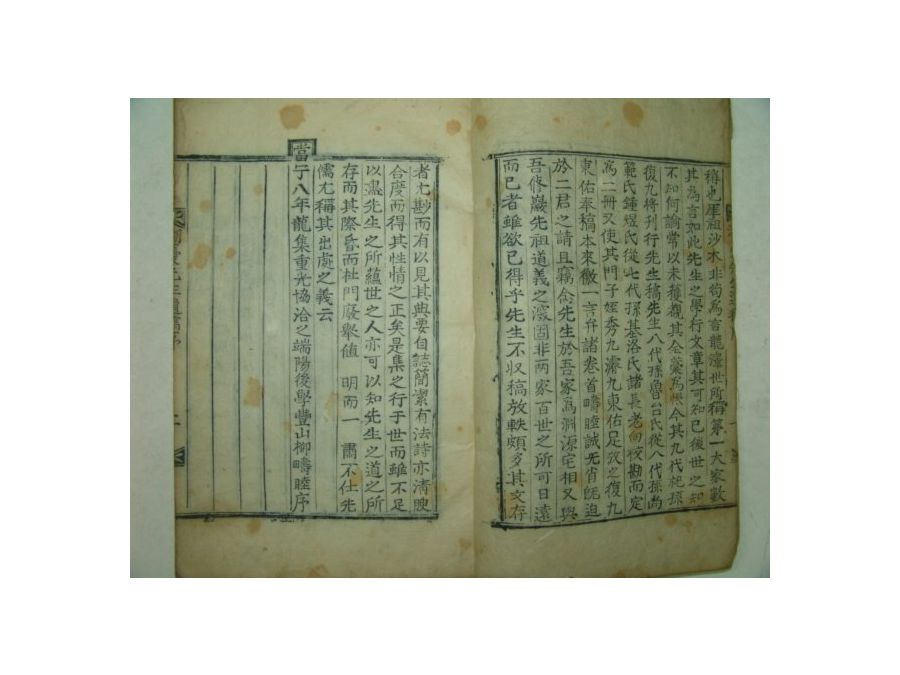 稱也厓祖沙木非苟爲言龍潭世所稱第一大家數
其爲言如此先生之學行文章其可知已後世之知
不知何論常以未獲覩其全藁爲恨今其九代祀孫
復九將刋行先生稿先生八代孫魯 氏從八代孫尚
範氏鍾煜氏從七代孫基洛氏諸長老向校勘而定
爲二冊又使其門子姪秀九濬九東佑足孜之復九
東佑奉稿本來徵一言弁諸卷首疇睦誠无肖旣迫
於二君之請且竊念先生於吾家爲淵源宅相又與
吾修巖先祖道義之源固非兩家百世之所可日遠
而已者雖欲已得乎先生不収稿放軼頗多其文存
者尤尠而有以見其典要自誌簡潔有法詩亦清腴
合度而得其性情之正矣是集之行于世而雖不足
以盡先生之所蘊世之人亦可以知先生之道之所
存而其際昏而杜門廢舉値 明而一 肅不仕先
儒尤稱其出處之義云
當宁八年龍集重光協洽之端陽後學豐山柳疇睦序